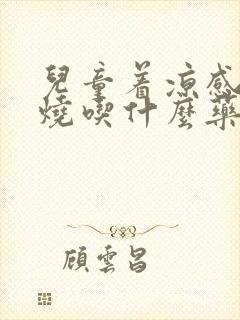 兒童着凉感
燒喫什麼藥
顧雲昌